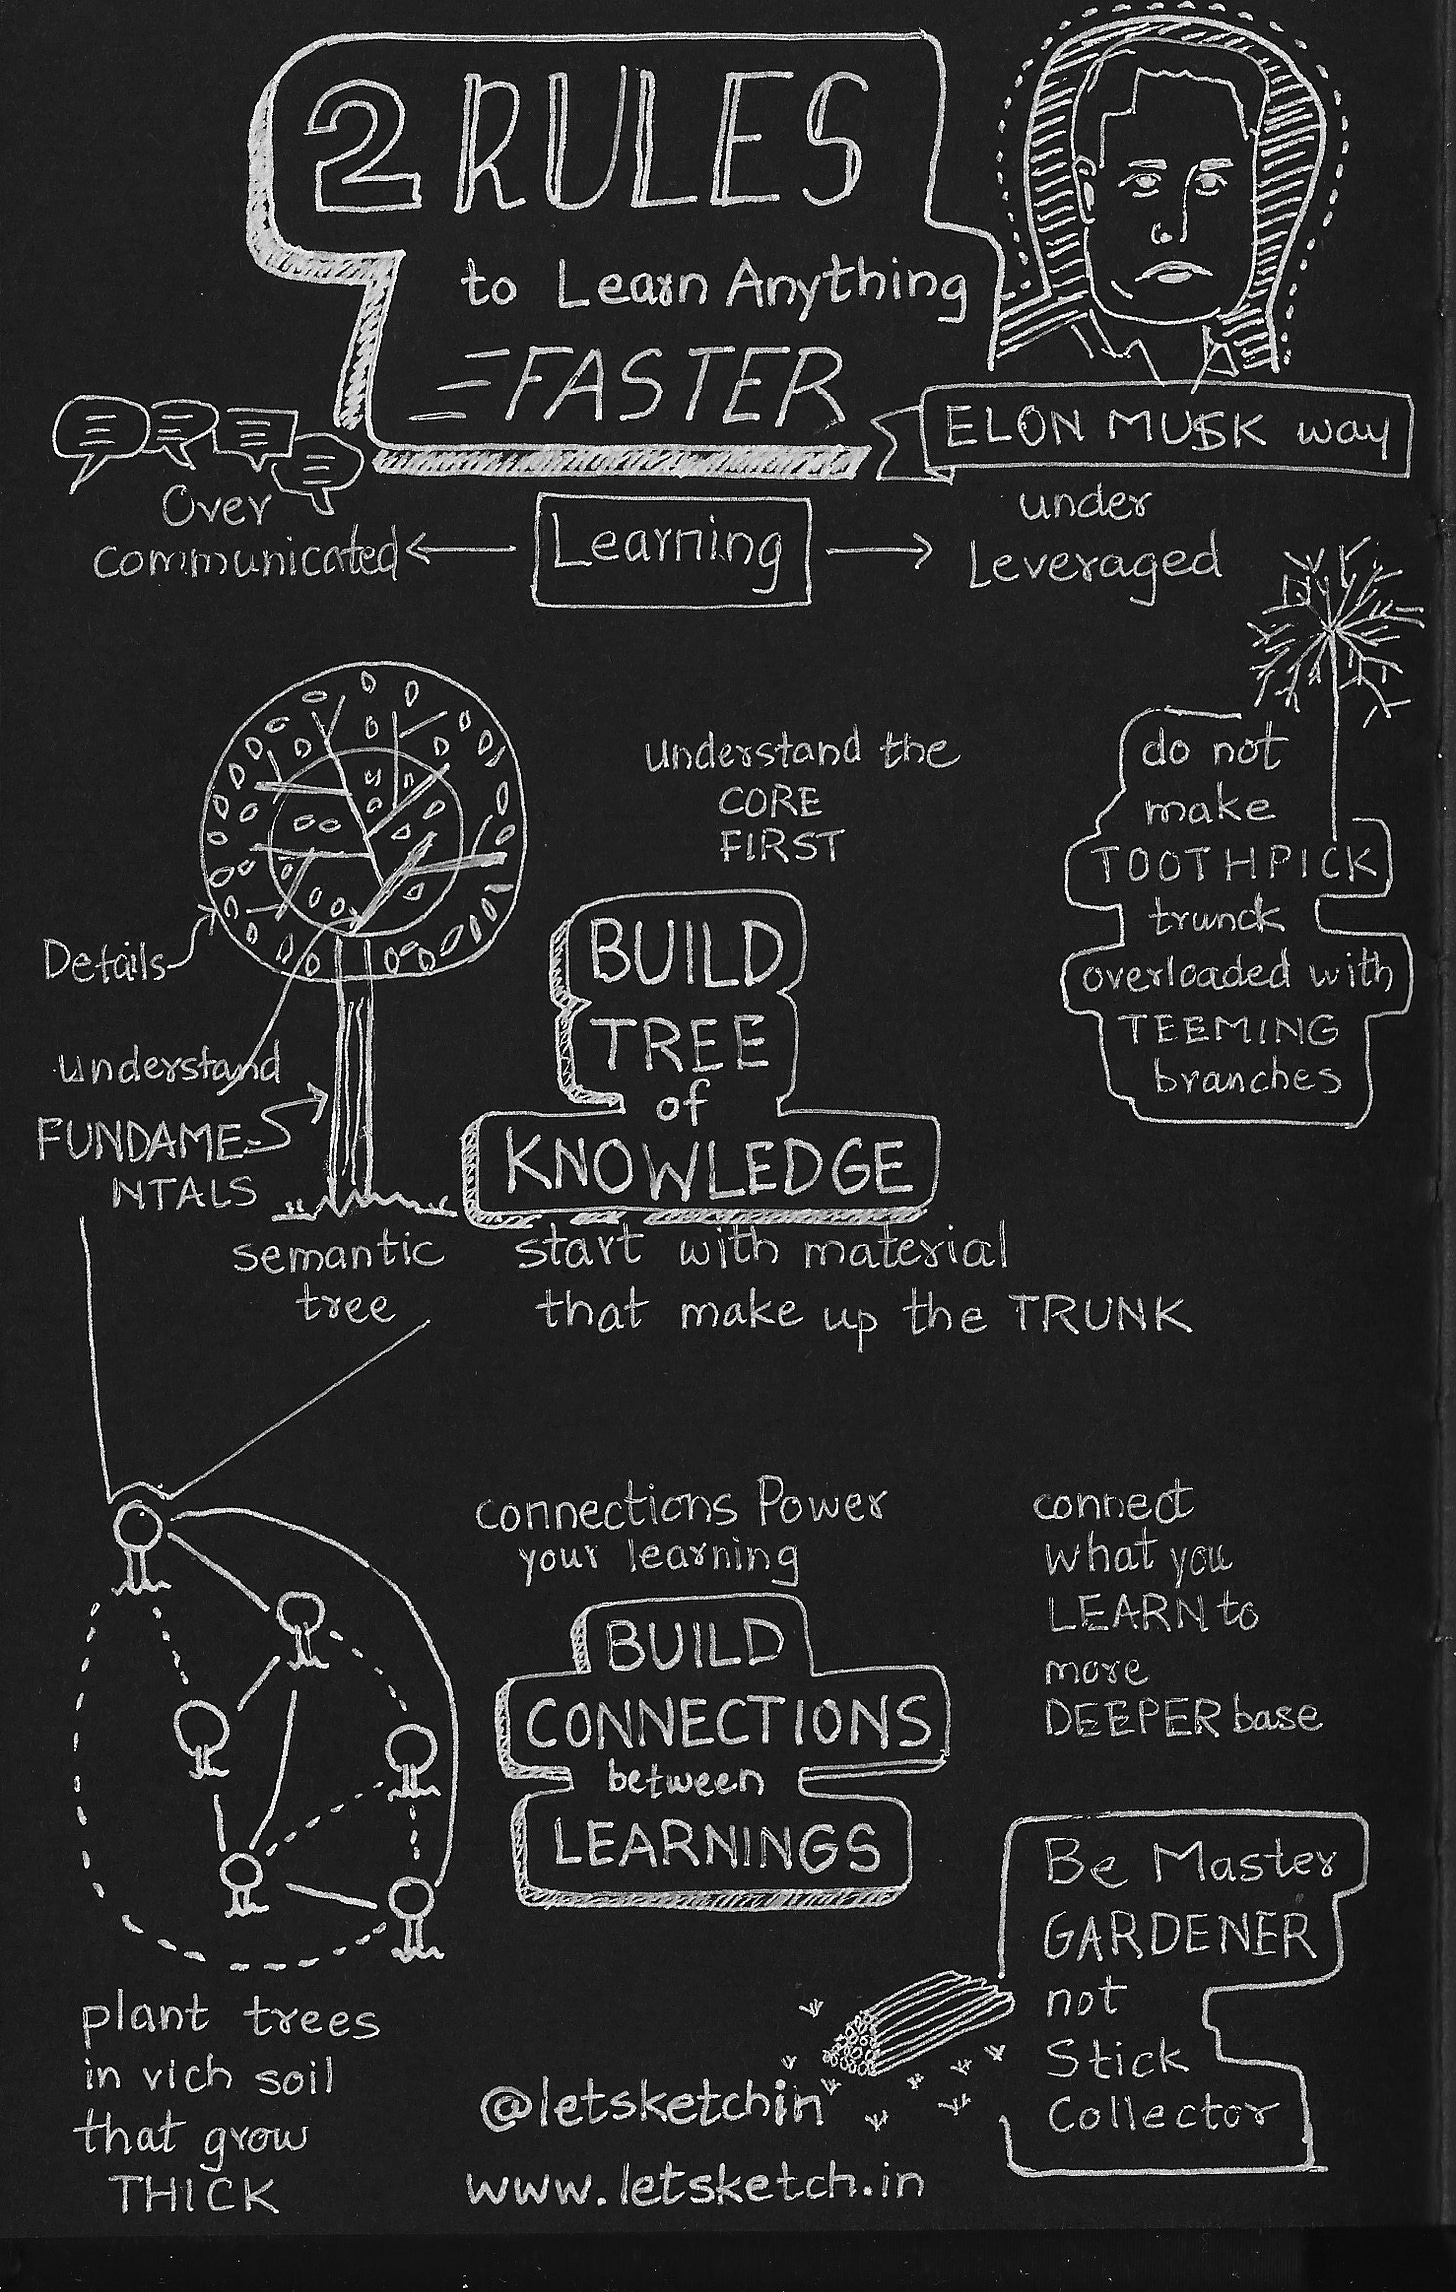 2 RULES
to Learn Anything
FASTER
ELON MUSK way
Over
communicated
Learning
under
Leveraged
understand the
CORE
FIRST
do not
make
TOOTHPICK
trunck
overloaded with
TEEMING
branches
Details
understand
FUNDAME-
NTALS
BUILD
TREE
of
KNOWLEDGE
semantic
tree
start with material
that make up the TRUNK
connections Power
your learning
BUILD
CONNECTIONS
between
LEARNINGS
connect
what you
LEARN to
more
DEEPER base
Be Master
GARDENER
not
Stick
Collector
plant trees
in rich soil
that grow
THICK
@letsketchin
www.letsketch.in